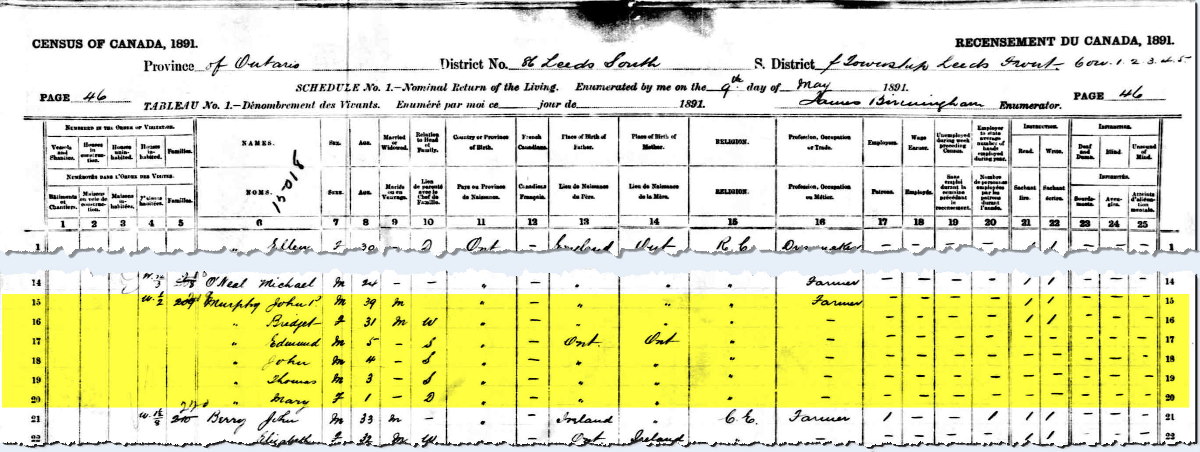 CENSUS OF CANADA, 1891.
RECENSEMENT DU CANADA, 1891.
Province of Ontario District No. 86 Leeds South S. District f Township Leeds Front. Con. 1. 2. 3. 4. 5
SCHEDULE No. 1.—Nominal Return of the Living. Enumerated by me on the 9th day of May 1891.
PAGE 46
PAGE 46
TABLEAU No. 1.—Dénombrement des Vivants. Enuméré par moi ce jour de 1891. James Birmingham Enumerator.
NUMBERED IN THE ORDER OF VISITATION.
Vessels and Shanties. Houses in construction. Houses uninhabited. Houses inhabited. Families.
NAMES. Sex. Age. Married or Widowed. Relation to Head of Family. Country or Province of Birth. French Canadians. Place of Birth of Father. Place of Birth of Mother. RELIGION. Profession, Occupation or Trade. Employers. Wage Earner. Unemployed during week preceding Census. Employer to state average number of hands employed during year.
INSTRUCTION. Read. Write.
INFIRMITIES. Deaf and Dumb. Blind. Unsound of Mind.
NUMÉROTÉS DANS L'ORDRE DES VISITES.
Bâtiments et Chantiers. Maisons en voie de construction. Maisons inhabitées. Maisons habitées. Familles.
NOMS. SEXE. AGE. Mariés ou en Veuvage. Lien de parenté avec le Chef de Famille. Pays ou Province de Naissance. Canadiens Français. Lieu de Naissance du Père. Lieu de Naissance de la Mère. RELIGION. Profession, Occupation ou Métier. Patrons. Employés. Sans emploi durant la semaine précédant le recensement. Nombre de personnes employées par les patrons durant l'année.
Sachant lire. Sachant écrire. Sourds-muets. Aveugles. Atteints d'aliénation mentale.
1 2 3 4 5 6 7 8 9 10 11 12 13 14 15 16 17 18 19 20 21 22 23 24 25
1 " Ellen F 30 – D Ont – England R.C. – – – – 1 1 – – – 1
14 O'Neal Michael M 24 – – " – " " " Farmer – – – – 1 1 – – – 14
15 Murphy John P M 39 M " – " " " Farmer – – – – 1 1 – – – 15
16 " Bridget F 31 M W " – " " " – – – – – 1 1 – – – 16
17 " Edmund M 5 – S " – Ont. Ont " – – – – – – – – – – 17
18 " John M 4 – S " – " " " – – – – – – – – – – 18
19 " Thomas M 3 – S " – " " " – – – – – – – – – – 19
20 " Mary F 1 – D " – " " " – – – – – – – – – – 20
21 Berry John M 33 M – " – Ireland " C.E. Farmer 1 – – 1 1 1 – – – 21
22 " Elizabeth F M W " – Ont Ireland " – – – – – 1 1 – – – 22